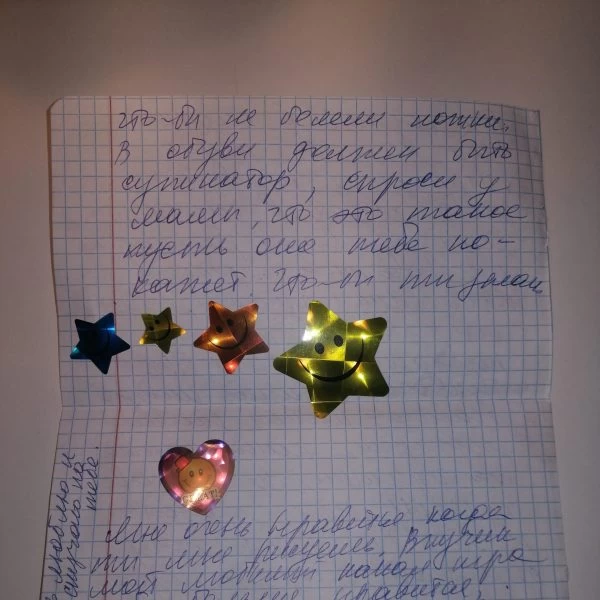 что-бы не болели ножки.
В обуви должен быть
супинатор, спроси у
мамы, что это такое
пусть она тебе по-
кажет. что-бы ты знал
люблю и
скучаю по
тебе.
Мне очень нравится когда
ты мне рисуешь. Внучек
мой любимый какая игра
нравится,